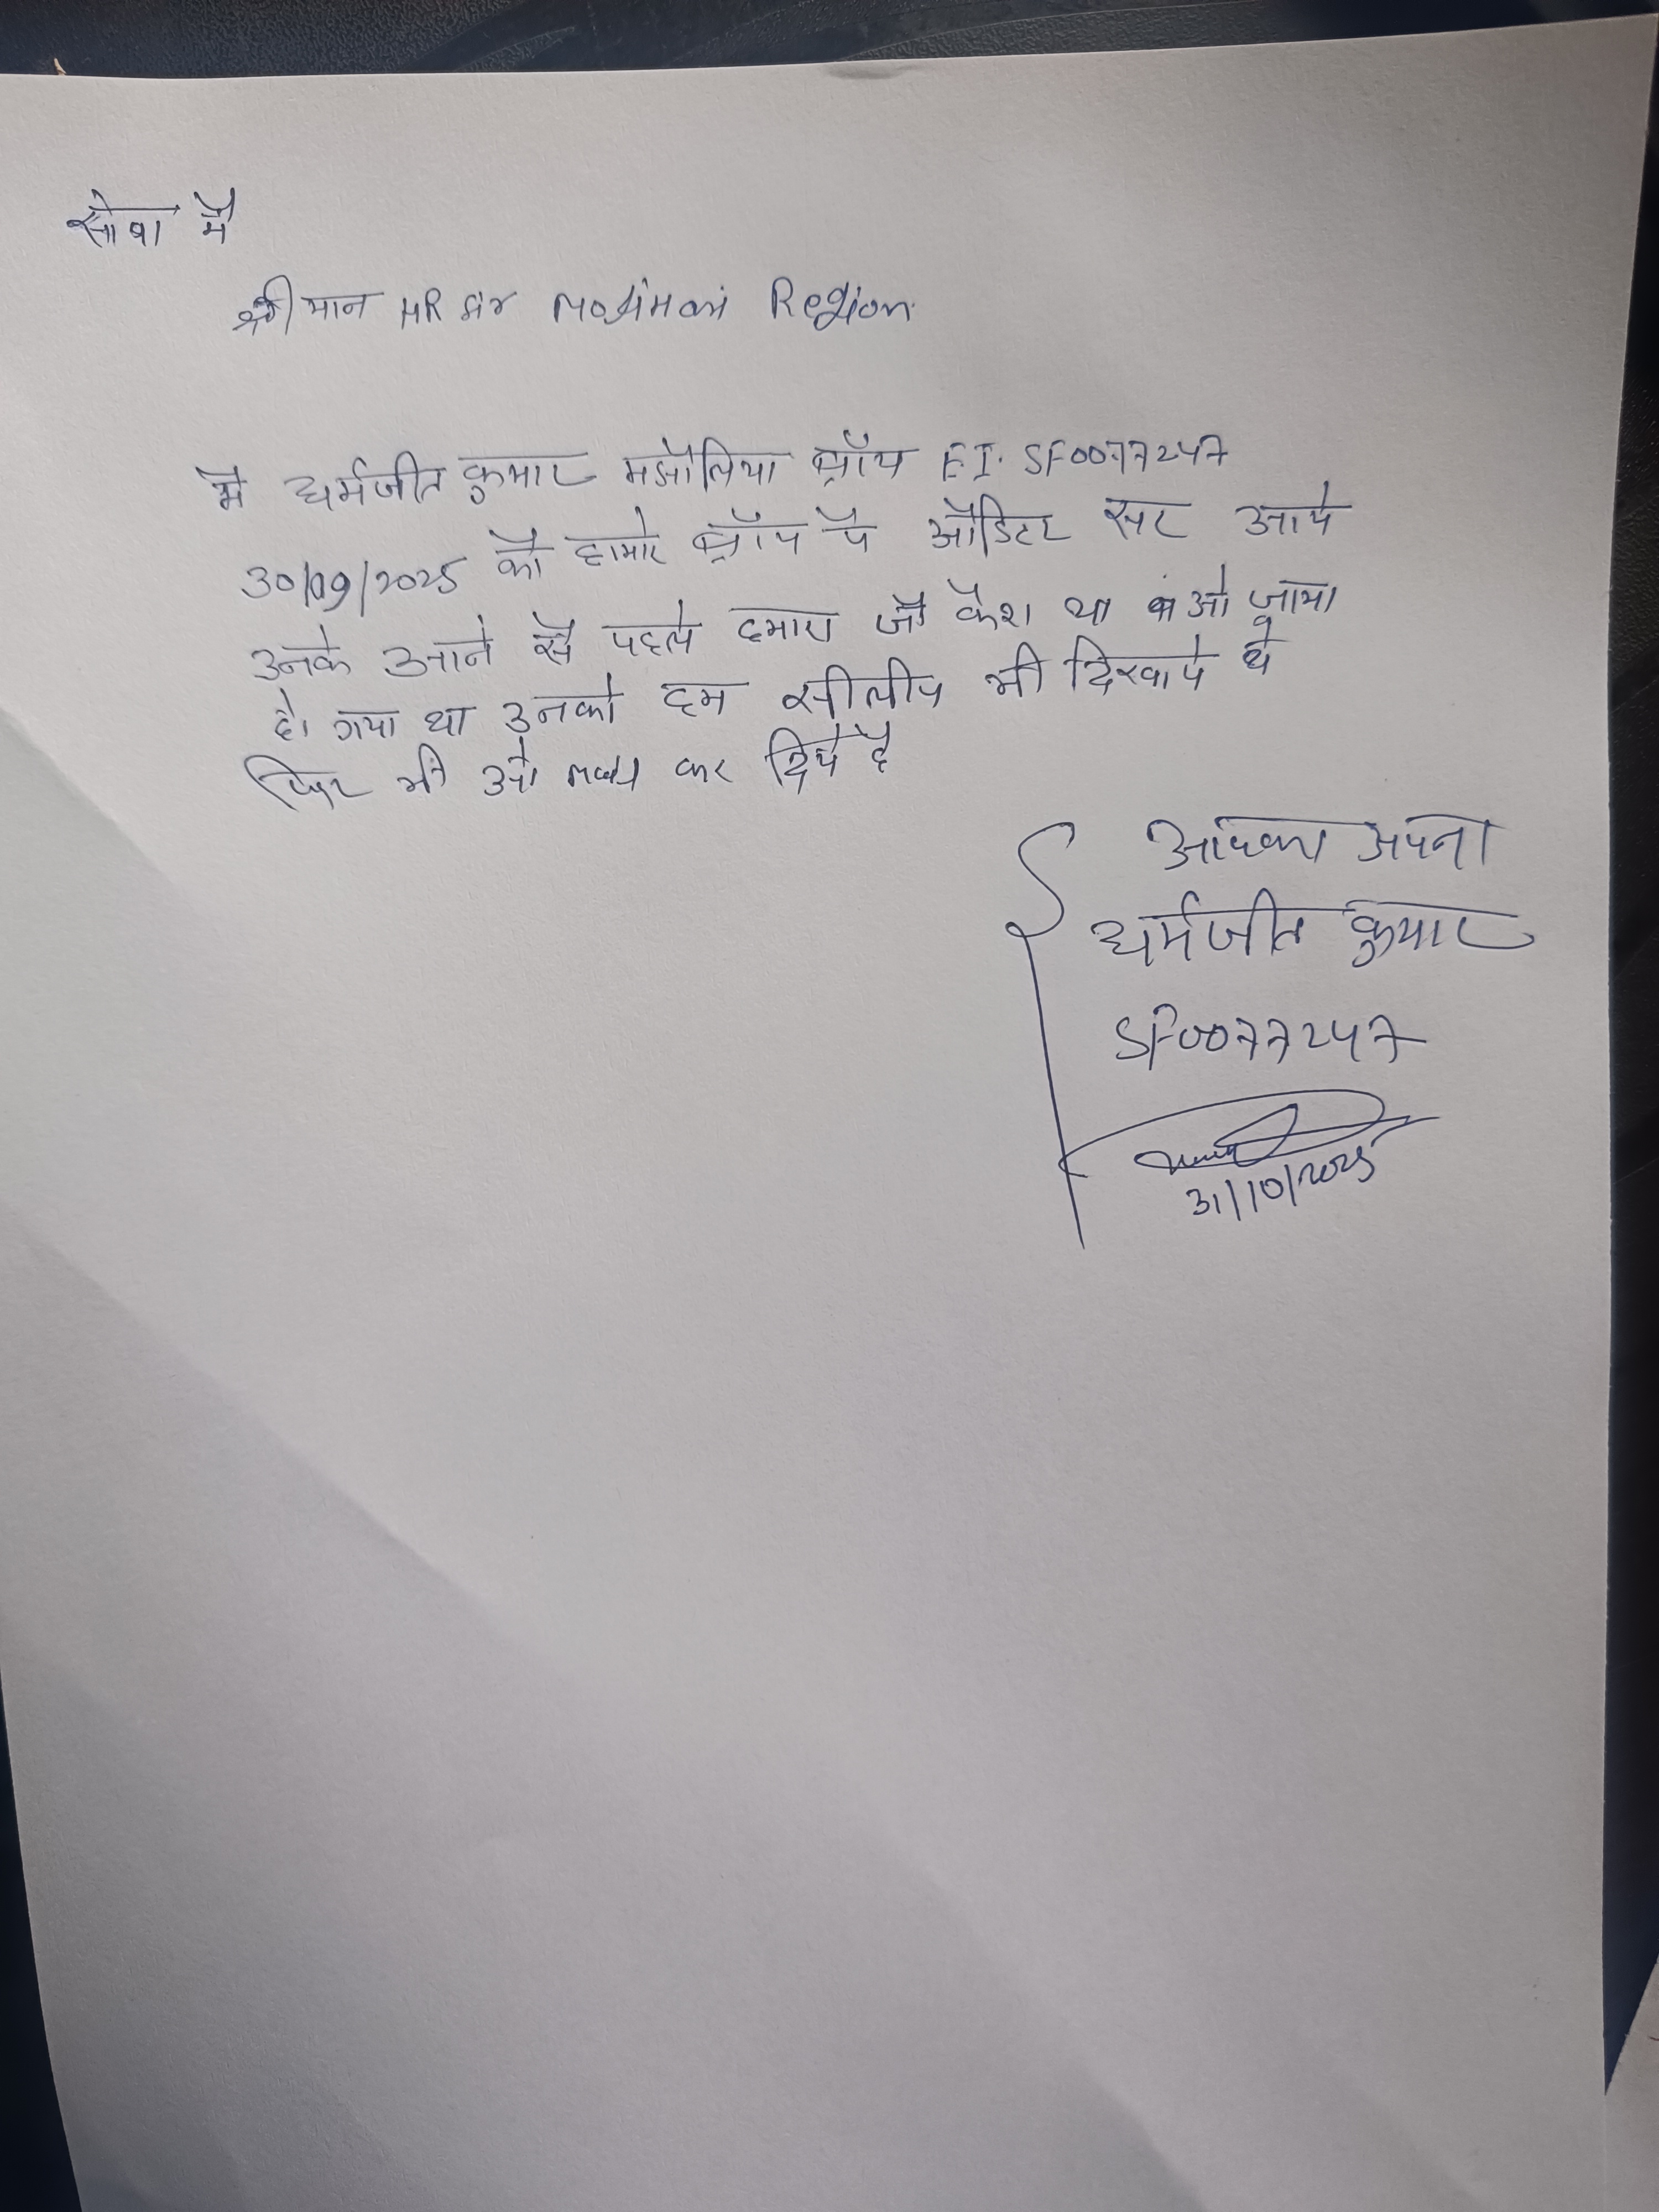 सेवा में
श्रीमान HR सर Motihari Region
मै धर्मजीत कुमार मझौलिया ब्रॉच E.I. SF0077247
30/09/2025 को हामारे ब्रॉच पे ऑडिटर सर आये
उनके आने से पहले हमारा जो कैश था ओ जामा
हो गया था उनको हम सीलीप भी दिखाये थे
फिर भी ओ कर दिये है
आपका अपना
धर्मजीत कुमार
SF0077247
31/10/2025